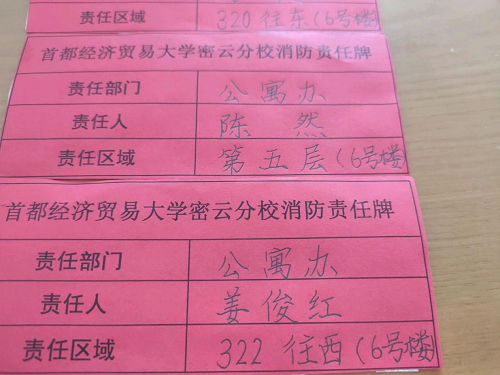 责任区域 320 往东(6号楼
首都经济贸易大学密云分校消防责任牌
责任部门 公寓办
责任人 陈 然
责任区域 第五层(6号楼
首都经济贸易大学密云分校消防责任牌
责任部门 公寓办
责任人 姜俊红
责任区域 322 往西(6号楼)